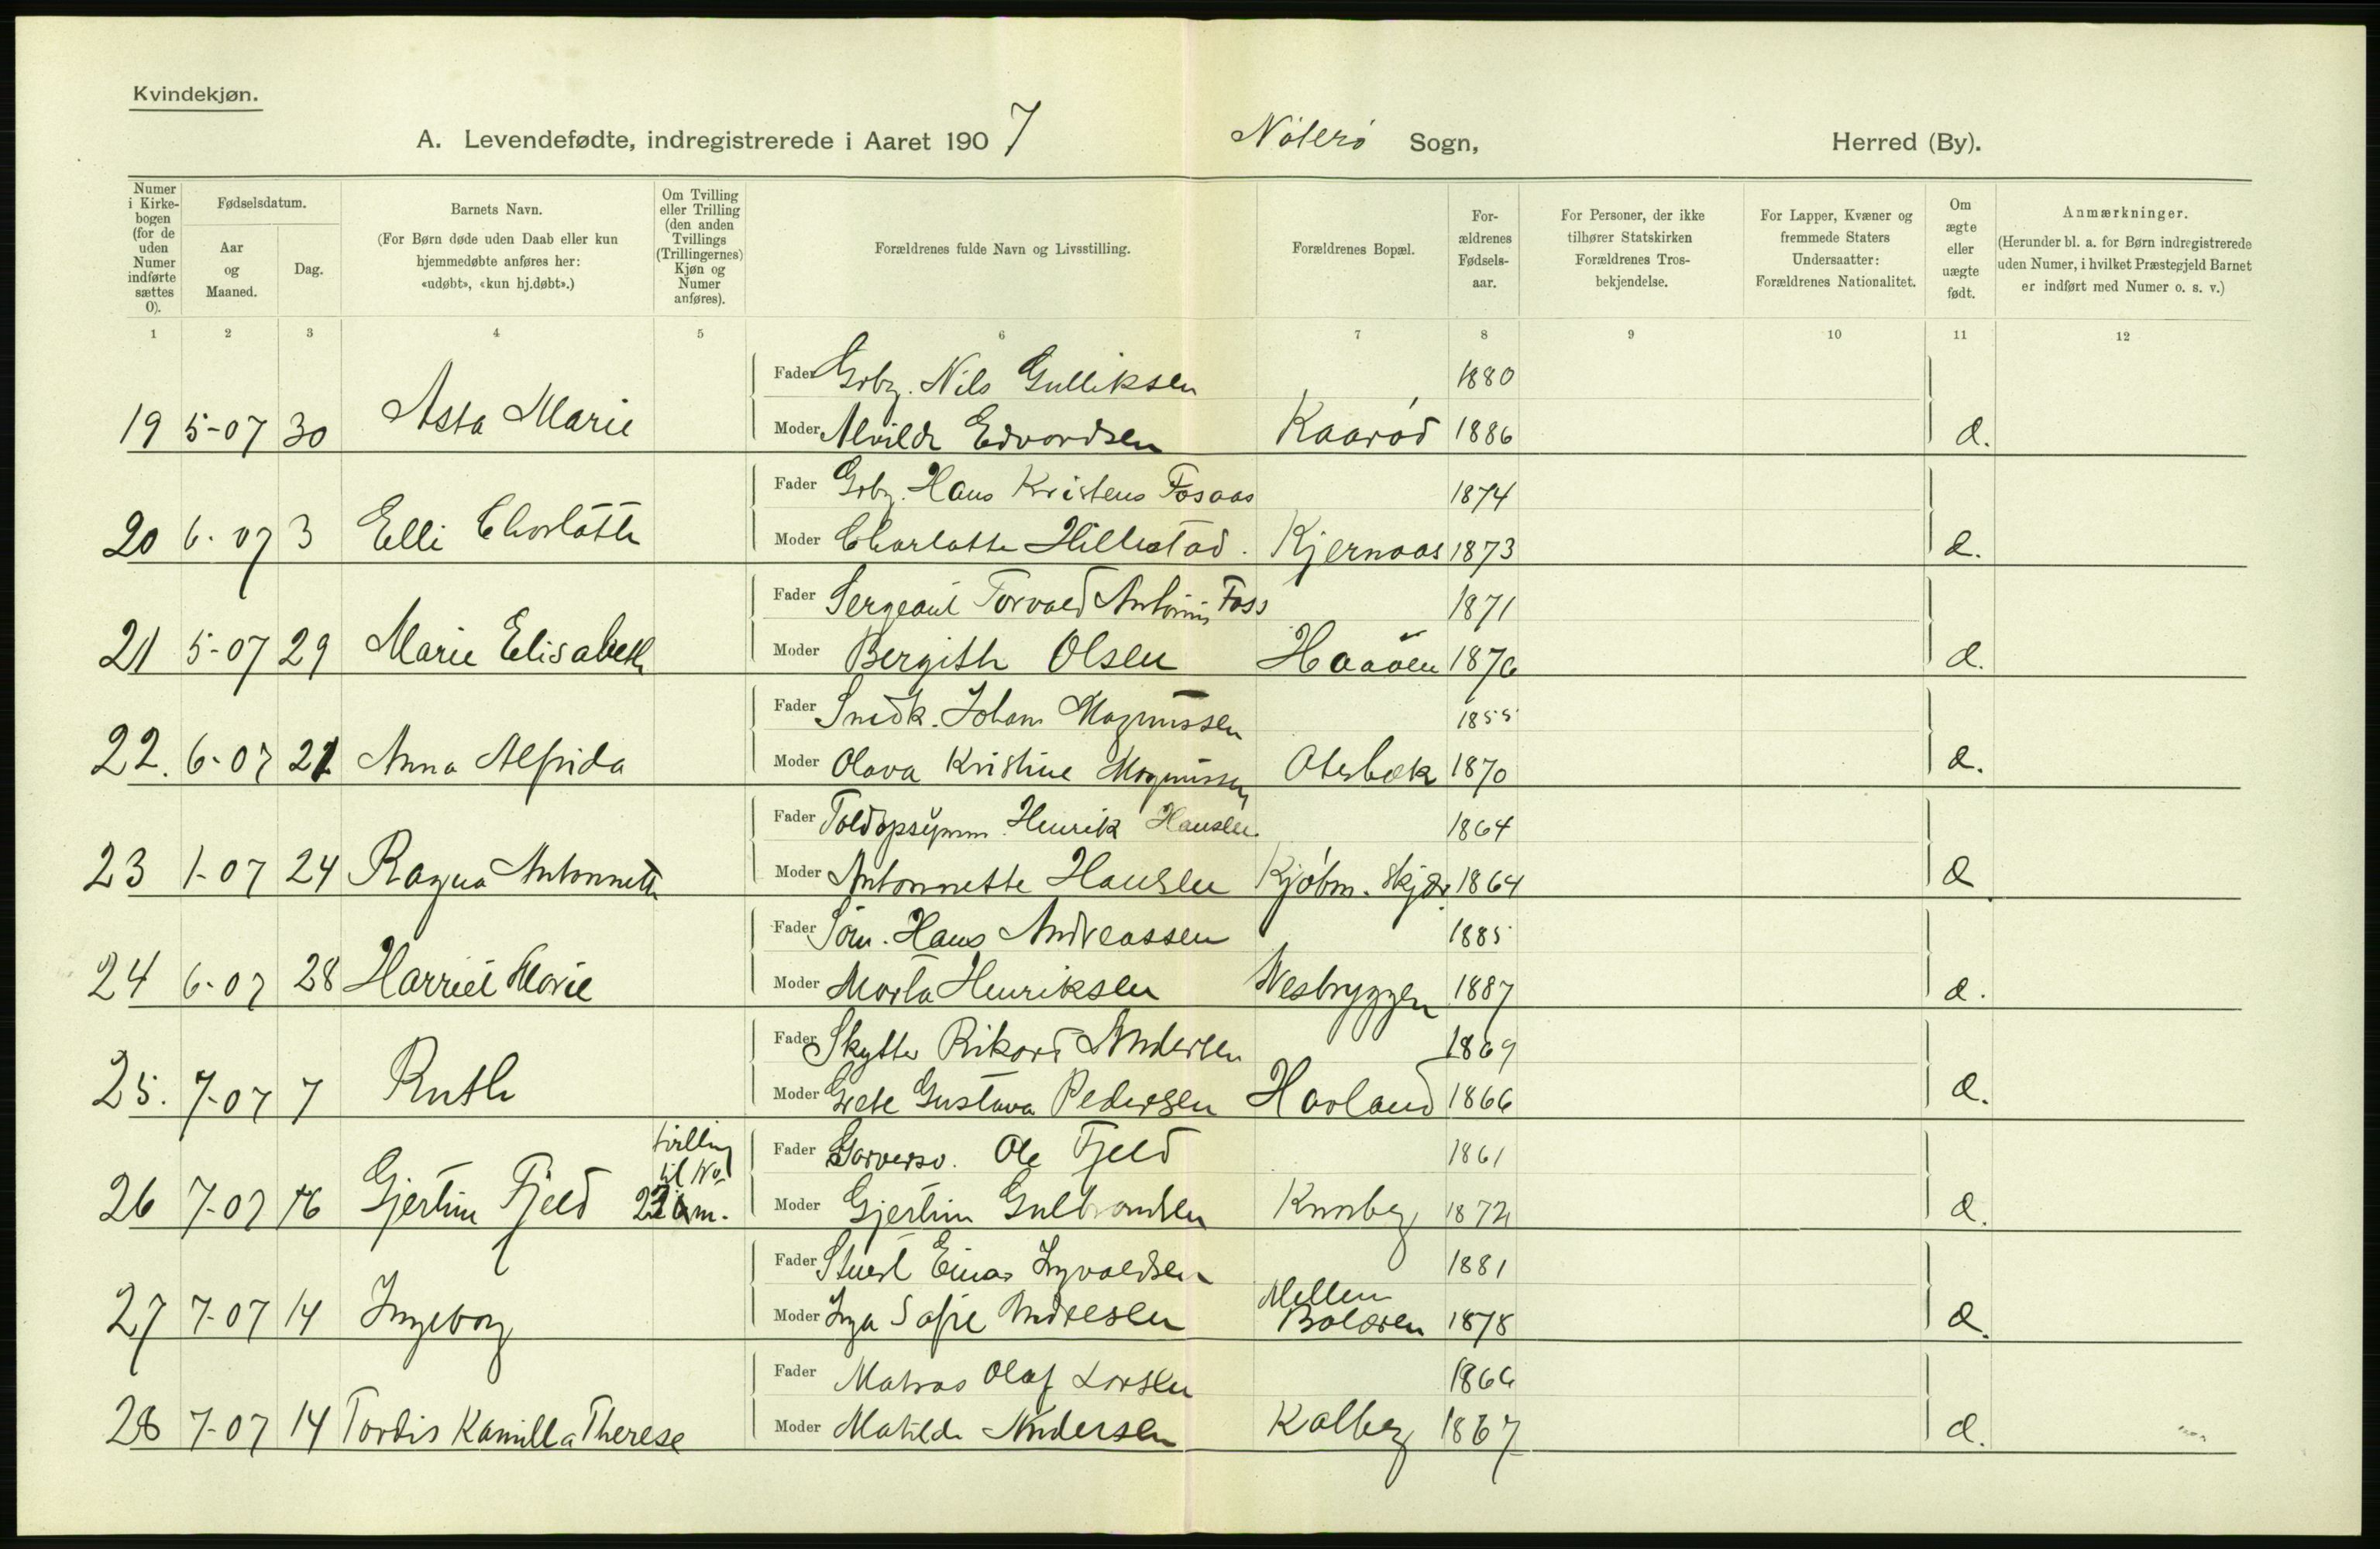 Kvindekjøn.
A. Levendefødte, indregistrerede i Aaret 1907 Nøterø Sogn, Herred (By).
Numer i Kirke- bogen (for de uden Numer indførte sættes 0).
Fødselsdatum.
Aar og Maaned.
Dag.
Barnets Navn.
(For Børn døde uden Daab eller kun hjemmedøbte anføres her: «udøbt», «kun hj.døbt».)
Om Tvilling eller Trilling (den anden Tvillings (Trillingernes) Kjøn og Numer anføres).
Forældrenes fulde Navn og Livsstilling.
Forældrenes Bopæl.
For- ældrenes Fødsels- aar.
For Personer, der ikke tilhører Statskirken Forældrenes Tros- bekjendelse.
For Lapper, Kvæner og fremmede Staters Undersaatter: Forældrenes Nationalitet.
Om ægte eller uægte født.
Anmærkninger.
(Herunder bl. a. for Børn indregistrerede uden Numer, i hvilket Præstegjeld Barnet er indført med Numer o. s. v.)
1 2 3 4 5 6 7 8 9 10 11 12
Fader Grbr. Nils Gulliksen 1880
19 5-07 30 Asta Marie Moder Alvilde Edvardsen Kaarød 1886 æ.
Fader Grbr. Hans Kristens Fosaas 1874
20 6-07 3 Elli Charlotte Moder Charlotte Hillestad. Kjernaas 1873 æ.
Fader Sergeant Torvald Antonius Foss 1871
21 5-07 29 Marie Elisabeth Moder Bergithe Olsen Haaøen 1876 æ.
Fader Snedk. Johan Magnussen 1855
22. 6-07 21 Anna Alfrida Moder Olava Kristine Magnussen Otersbæk 1870 æ.
Fader Toldopsynm. Henrik Hansen 1864
23 1-07 24 Ragna Antonnette Moder Antonnette Hansen Kjøbm. skjær 1864 æ
Fader Søm. Hans Andreassen 1885
24 6-07 28 Harriet Marie Moder Marta Henriksen Nesbryggen 1887 æ.
Fader Skytter Rikard Andersen 1869
25. 7-07 7 Ruth Moder Grete Gustava Pedersen Havland 1866 æ.
tvilling
til No
Fader Garversv. Ole Fjeld 1861
26 7-07 16 Gjertine Fjeld m. Moder Gjertine Gulbrandsen Knarberg 1872 æ.
Fader Stuert Einar Ingvaldsen 1881
Mellem
27 7-07 14 Ingeborg Moder Inga Sofie Andresen Bolæren 1878 æ.
Fader Matros Olaf Larsen 1866
28 7-07 14 Tordis Kamilla Therese Moder Matilde Andersen Kalberg 1867 æ.